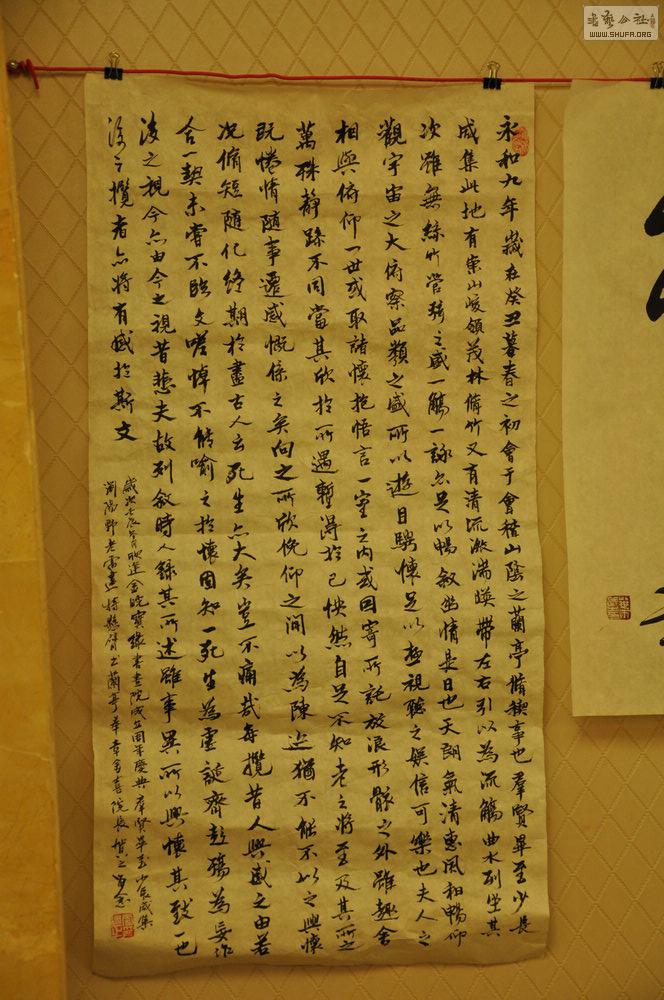 永和九年歲在癸丑暮春之初會于會稽山陰之蘭亭脩禊事也羣賢畢至少長
咸集此地有崇山峻領茂林脩竹又有清流激湍暎帶左右引以為流觴曲水列坐其
次雖無絲竹管弦之盛一觴一詠亦足以暢敘幽情是日也天朗氣清惠風和暢仰
觀宇宙之大俯察品類之盛所以遊目騁懷足以極視聽之娛信可樂也夫人之
相與俯仰一世或取諸懷抱悟言一室之內或因寄所託放浪形骸之外雖趣舍
萬殊靜躁不同當其欣於所遇暫得於己怏然自足不知老之將至及其所之
既惓情隨事遷感慨係之矣向之所欣俛仰之間以為陳迹猶不能不以之興懷
况脩短隨化終期於盡古人云死生亦大矣豈不痛哉每攬昔人興感之由若
合一契未嘗不臨文嗟悼不能喻之於懷固知一死生為虛誕齊彭殤為妄作
後之視今亦由今之視昔悲夫故列敘時人錄其所述雖事異所以興懷其致一也
後之攬者亦將有感於斯文
歲次壬辰欣逢金皖寶緣書畫院成立周年慶典羣賢畢至少長咸集
瀏陽野老懸臂書蘭亭華章喜院長留念
書藝公社
WWW.SHUFA.ORG